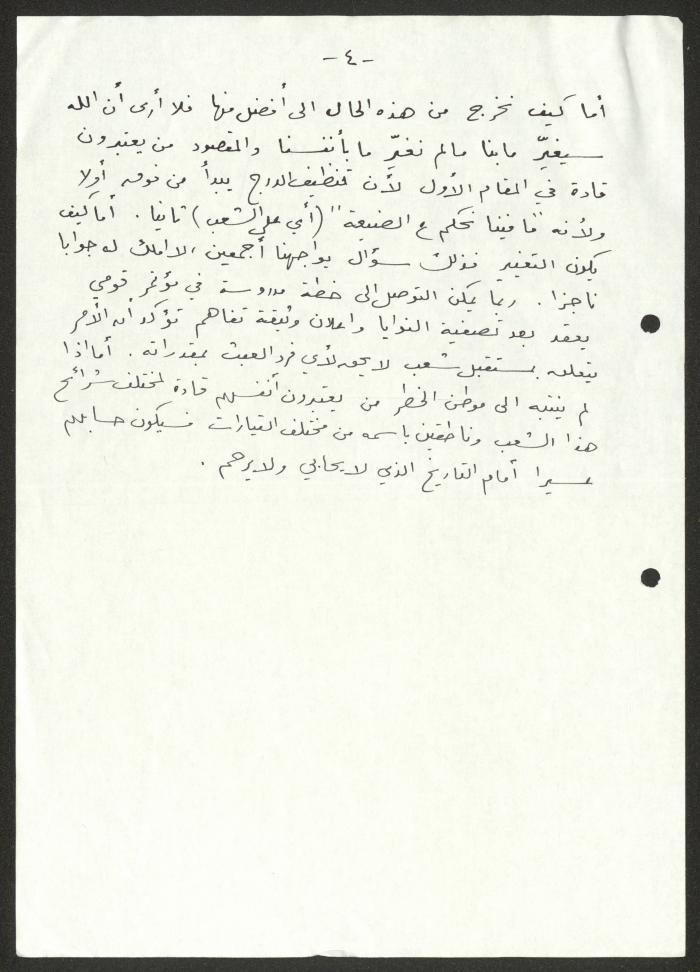 - ٤ -
أما كيف نخرج من هذه الحال الى أفضل منها فلا أرى أن الله
سيغيّر ما بنا مالم نغيّر ما بأنفسنا والمقصود من يعتبرون
قادة في المقام الأول لأن تنظيف الدرج يبدأ من فوقه أولا
ولأنه "ما فينا نحكم ع الضيعة" (أي على الشعب) ثانيا. أما كيف
يكون التغيير فذلك سؤال يواجهنا أجمعين، لا املك له جوابا
ناجزا. ربما يمكن التوصل الى خطة مدروسة في مؤتمر قومي
يعقد بعد تصفية النوايا واعلان وثيقة تفاهم تؤكد أن الأمر
يتعلق بمستقبل شعب لا يحق لأي فرد العبث بمقدراته. أما اذا
لم ينتبه الى موطن الخطر من يعتبرون أنفسهم قادة لمختلف شرائح
هذا الشعب وناطقين باسمه من مختلف التيارات فسيكون حسابهم
عسيرا أمام التاريخ الذي لا يحابي ولا يرحم.